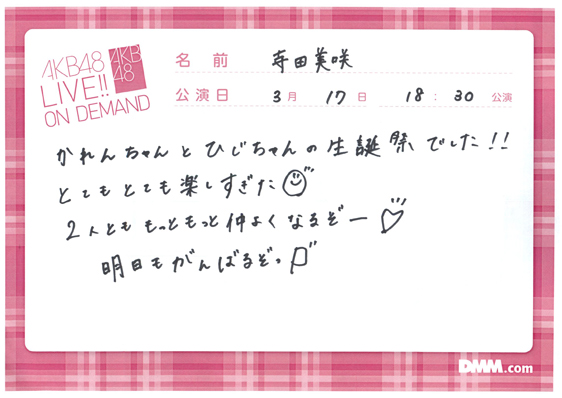 AKB48
LIVE!!
ON DEMAND
AKB
48
名前 寺田美咲
公演日 3月 17日 18:30 公演
かれんちゃんとひじちゃんの生誕祭でした!!
とてもとても楽しすぎた
2人とももっともっと仲よくなるぞー
明日もがんばるぞっ
DMM.com